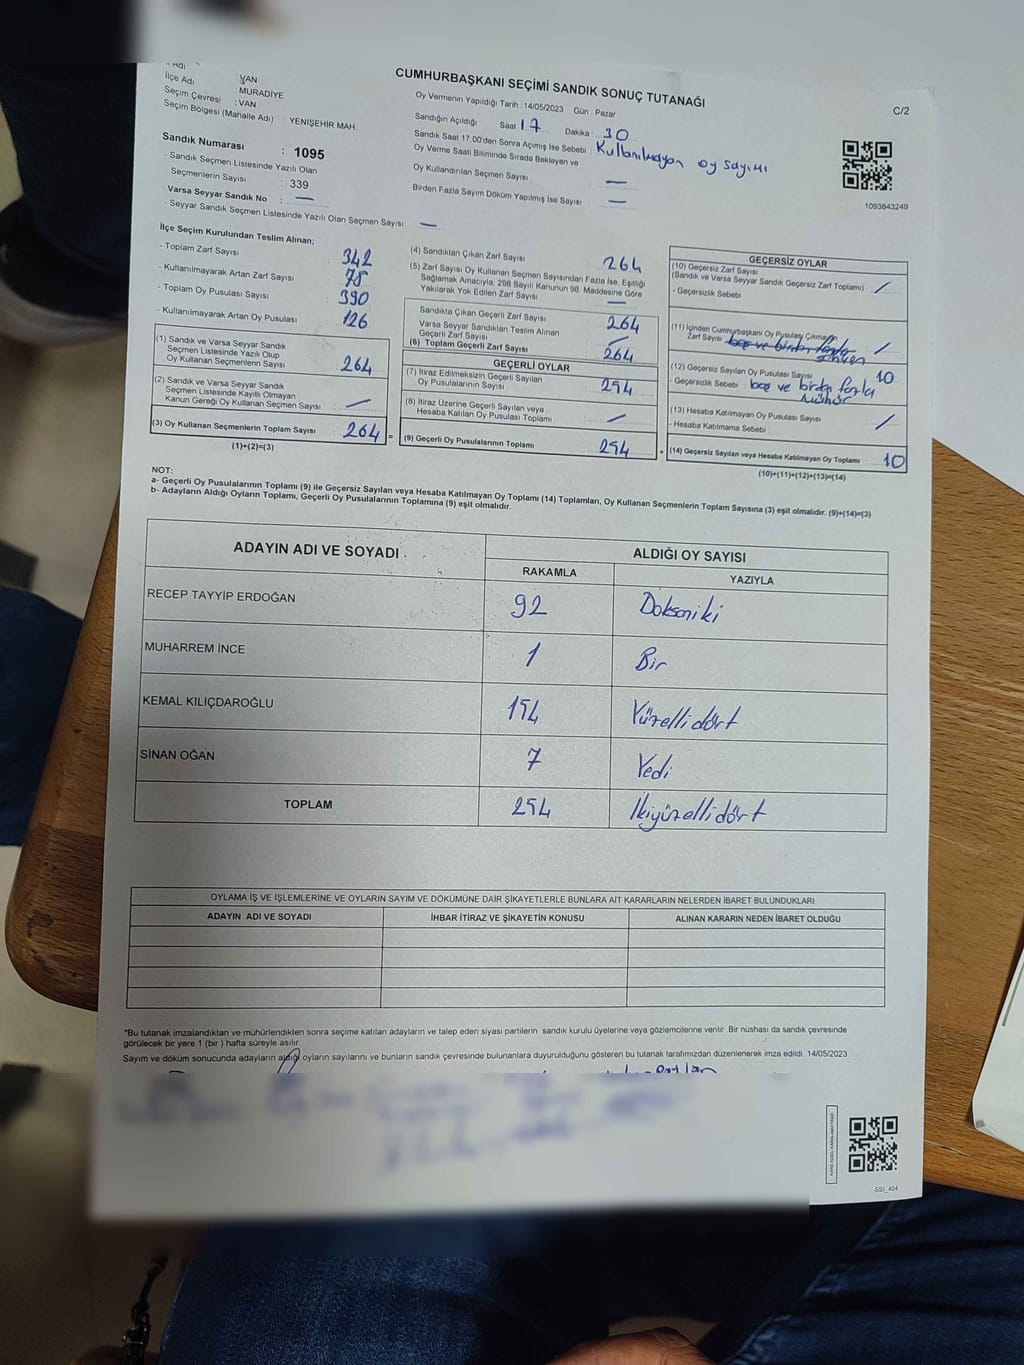 CUMHURBAŞKANI SEÇİMİ SANDIK SONUÇ TUTANAĞI
C/2
İl Adı
: VAN
İlçe Adı : MURADİYE
Seçim Çevresi : VAN
Seçim Bölgesi (Mahalle Adı) : YENİŞEHİR MAH.
Sandık Numarası : 1095
- Sandık Seçmen Listesinde Yazılı Olan
Seçmenlerin Sayısı : 339
Varsa Seyyar Sandık No : —
- Seyyar Sandık Seçmen Listesinde Yazılı Olan Seçmen Sayısı: —
Oy Vermenin Yapıldığı Tarih : 14/05/2023 Gün : Pazar
Sandığın Açıldığı Saat 17 Dakika : 30
Sandık Saat 17:00'den Sonra Açımış İse Sebebi : Kullanılmayan oy sayımı
Oy Verme Saati Bitiminde Sırada Bekleyen ve
Oy Kullandırılan Seçmen Sayısı : —
Birden Fazla Sayım Döküm Yapılmış İse Sayısı : —
1093843249
İlçe Seçim Kurulundan Teslim Alınan;
- Toplam Zarf Sayısı 342
- Kullanılmayarak Artan Zarf Sayısı 78
- Toplam Oy Pusulası Sayısı 390
- Kullanılmayarak Artan Oy Pusulası 126
(1) Sandık ve Varsa Seyyar Sandık
Seçmen Listesinde Yazılı Olup
Oy Kullanan Seçmenlerin Sayısı 264
(2) Sandık ve Varsa Seyyar Sandık
Seçmen Listesinde Kayıtlı Olmayan
Kanun Gereği Oy Kullanan Seçmen Sayısı —
(3) Oy Kullanan Seçmenlerin Toplam Sayısı 264 =
(1)+(2)=(3)
(4) Sandıktan Çıkan Zarf Sayısı 264
(5) Zarf Sayısı Oy Kullanan Seçmen Sayısından Fazla İse, Eşitliği
Sağlamak Amacıyla, 298 Sayılı Kanunun 98. Maddesine Göre
Yakılarak Yok Edilen Zarf Sayısı —
Sandıkta Çıkan Geçerli Zarf Sayısı 264
Varsa Seyyar Sandıktan Teslim Alınan
Geçerli Zarf Sayısı
(6) Toplam Geçerli Zarf Sayısı 264
GEÇERLİ OYLAR
(7) İtiraz Edilmeksizin Geçerli Sayılan
Oy Pusulalarının Sayısı 254
(8) İtiraz Üzerine Geçerli Sayılan veya
Hesaba Katılan Oy Pusulası Toplamı /
(9) Geçerli Oy Pusulalarının Toplamı 254 +
GEÇERSİZ OYLAR
(10) Geçersiz Zarf Sayısı
(Sandık ve Varsa Seyyar Sandık Geçersiz Zarf Toplamı) /
- Geçersizlik Sebebi
(11) İçinden Cumhurbaşkanı Oy Pusulası Çıkmayan
Zarf Sayısı /
(12) Geçersiz Sayılan Oy Pusulası Sayısı 10
- Geçersizlik Sebebi boş ve birden fazla
Mühür
(13) Hesaba Katılmayan Oy Pusulası Sayısı /
- Hesaba Katılmama Sebebi
(14) Geçersiz Sayılan veya Hesaba Katılmayan Oy Toplamı 10
(10)+(11)+(12)+(13)=(14)
NOT:
a- Geçerli Oy Pusulalarının Toplamı (9) ile Geçersiz Sayılan veya Hesaba Katılmayan Oy Toplamı (14) Toplamları, Oy Kullanan Seçmenlerin Toplam Sayısına (3) eşit olmalıdır. (9)+(14)=(3)
b- Adayların Aldığı Oyların Toplamı, Geçerli Oy Pusulalarının Toplamına (9) eşit olmalıdır.
ADAYIN ADI VE SOYADI ALDIĞI OY SAYISI
RAKAMLA YAZIYLA
RECEP TAYYİP ERDOĞAN 92 Doksaniki
MUHARREM İNCE 1 Bir
KEMAL KILIÇDAROĞLU 154 Yüzellidört
SİNAN OĞAN 7 Yedi
TOPLAM 254 İkiyüzellidört
OYLAMA İŞ VE İŞLEMLERİNE VE OYLARIN SAYIM VE DÖKÜMÜNE DAİR ŞİKAYETLERLE BUNLARA AİT KARARLARIN NELERDEN İBARET BULUNDUKLARI
ADAYIN ADI VE SOYADI İHBAR İTİRAZ VE ŞİKAYETİN KONUSU ALINAN KARARIN NEDEN İBARET OLDUĞU
*Bu tutanak imzalandıktan ve mühürlendikten sonra seçime katılan adayların ve talep eden siyasi partilerin sandık kurulu üyelerine veya gözlemcilerine verilir. Bir nüshası da sandık çevresinde
görülecek bir yere 1 (bir ) hafta süreyle asılır.
Sayım ve döküm sonucunda adayların aldığı oyların sayılarını ve bunların sandık çevresinde bulunanlara duyurulduğunu gösteren bu tutanak tarafımızdan düzenlenerek imza edildi. 14/05/2023
SSI_404